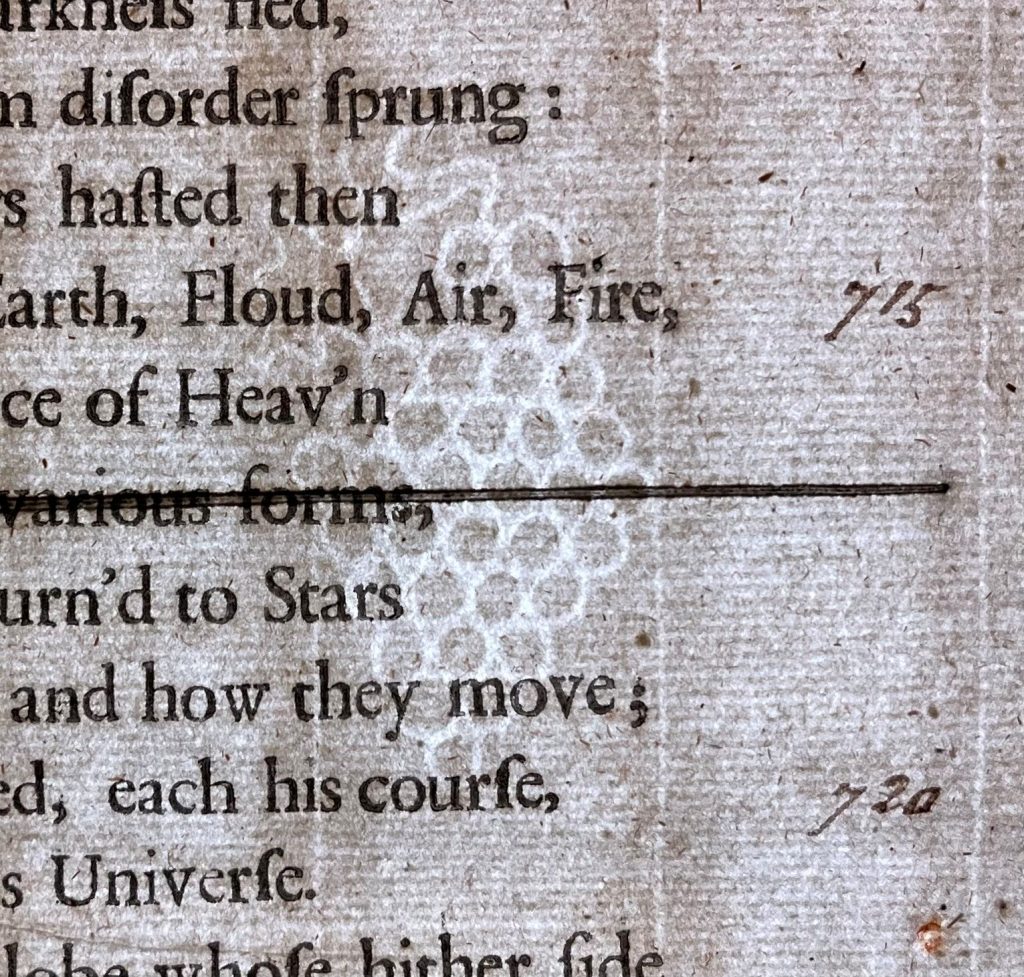 fled,
m diſorder ſprung :
haſted then
Earth, Floud, Air, Fire, 715
of Heav'n
various forms,
urn'd to Stars
and how they move ;
ed, each his courſe, 720
s Univerſe.
whoſe hither ſide